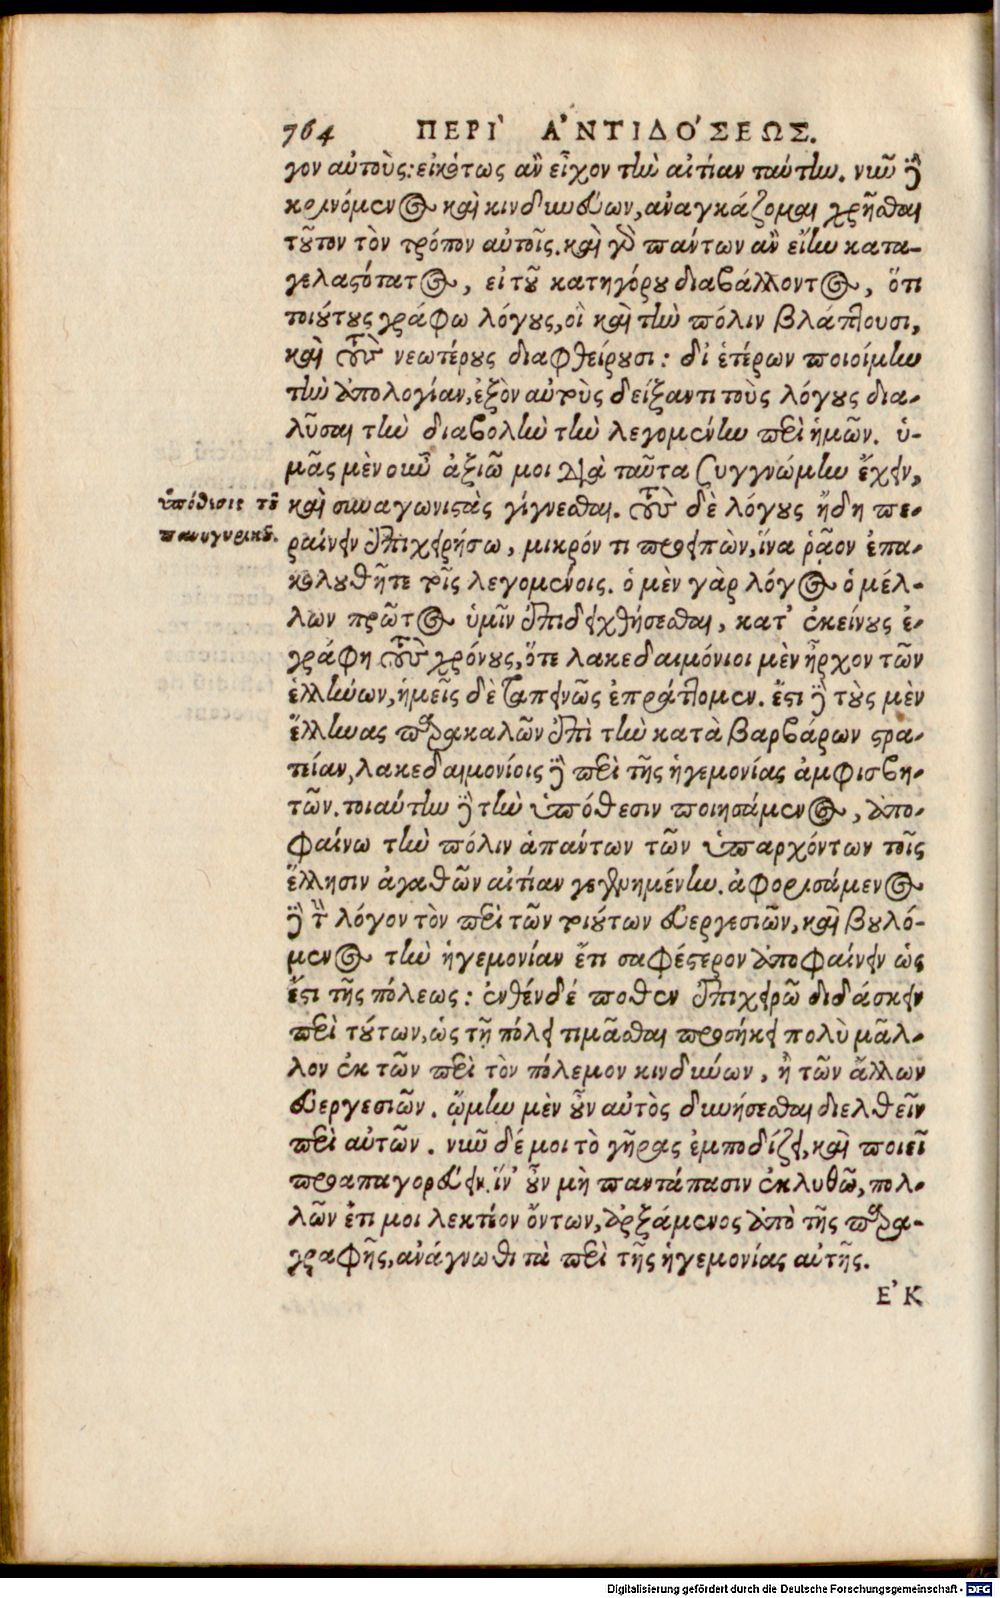 764 ΠΕΡΙ` Α'ΝΤΙΔΟ'ΣΕΩΣ.
γον αὐτοὺς: εἰκότως ἂν εἶχον τὴν αἰτίαν ταύτην. νῦν δὲ
κρινόμενος καὶ κινδυνεύων, ἀναγκάζομαι χρῆσθαι
τοῦτον τὸν τρόπον αὐτοῖς. καὶ γὰρ πάντων ἂν εἴην κατα-
γελαστότατος, εἰ τοῦ κατηγόρου διαβάλλοντος, ὅτι
τοιούτους γράφω λόγους, οἳ καὶ τὴν πόλιν βλάπτουσι,
καὶ τοὺς νεωτέρους διαφθείρουσι: δι' ἑτέρων ποιοίμην
τὴν ἀπολογίαν, ἐξὸν αὐτοὺς δείξαντι τοὺς λόγους δια-
λῦσαι τὴν διαβολὴν τὴν λεγομένην περὶ ἡμῶν. ὑ-
μᾶς μὲν οὖν ἀξιῶ μοι διὰ ταῦτα συγγνώμην ἔχειν,
ὑπόθεσις τοῦ
πανηγυρικοῦ.
καὶ συναγωνιστὰς γίγνεσθαι. τοὺς δὲ λόγους ἤδη πε-
ραίνειν ἐπιχειρήσω, μικρόν τι προειπὼν, ἵνα ῥᾷον ἐπα-
κολουθῆτε τοῖς λεγομένοις. ὁ μὲν γὰρ λόγος ὁ μέλ-
λων πρῶτος ὑμῖν ἐπιδειχθήσεσθαι, κατ' ἐκείνους ἐ-
γράφη τοὺς χρόνους, ὅτε λακεδαιμόνιοι μὲν ἦρχον τῶν
ἑλλήνων, ἡμεῖς δὲ ταπεινῶς ἐπράττομεν. ἔστι δὲ τοὺς μὲν
ἕλληνας παρακαλῶν ἐπὶ τὴν κατὰ βαρβάρων στρα-
τείαν, λακεδαιμονίοις δὲ περὶ τῆς ἡγεμονίας ἀμφισβη-
τῶν. τοιαύτην δὲ τὴν ὑπόθεσιν ποιησάμενος, ἀπο-
φαίνω τὴν πόλιν ἁπάντων τῶν ὑπαρχόντων τοῖς
ἕλλησιν ἀγαθῶν αἰτίαν γεγενημένην. ἀφορισάμενος
δὲ τὸν λόγον τὸν περὶ τῶν τοιούτων εὐεργεσιῶν, καὶ βουλό-
μενος τὴν ἡγεμονίαν ἔτι σαφέστερον ἀποφαίνειν ὡς
ἔστι τῆς πόλεως: ἐνθένδέ ποθεν ἐπιχειρῶ διδάσκειν
περὶ τούτων, ὡς τῇ πόλει τιμᾶσθαι προσήκει πολὺ μᾶλ-
λον ἐκ τῶν περὶ τὸν πόλεμον κινδύνων, ἢ τῶν ἄλλων
εὐεργεσιῶν. ᾤμην μὲν οὖν αὐτὸς δυνήσεσθαι διελθεῖν
περὶ αὐτῶν. νῦν δέ μοι τὸ γῆρας ἐμποδίζει, καὶ ποιεῖ
προαπαγορεύειν. ἵν' οὖν μὴ παντάπασιν ἐκλυθῶ, πολ-
λῶν ἔτι μοι λεκτέον ὄντων, ἀρξάμενος ἀπὸ τῆς παρα-
γραφῆς, ἀνάγνωθι τὰ περὶ τῆς ἡγεμονίας αὐτῆς.
Ε'Κ
Digitalisierung gefördert durch die Deutsche Forschungsgemeinschaft - DFG